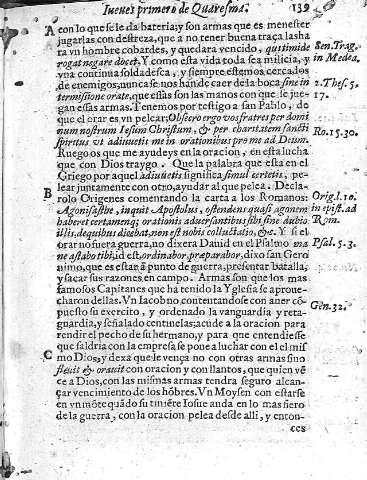 Jueues primero de Quaresma. 139
A con lo que se le da bateria; y son armas que es menester
jugarlas con destreza, que a no tener buena traça las ha
ra vn hombre cobardes, y quedara vencido, qui timide
rogat negare docet. Y como esta vida toda sea milicia, y
vna continua soldadesca, y siempre estemos cercados
de enemigos, nunca se nos ha de caer de la boca sine in
termissione orate, que estas son las manos con que se jue-
gan essas armas. Tenemos por testigo a san Pablo, de
que el orar es vn pelear; Obsecro ergo vos fratres per domi
num nostrum Iesum Christum, & per charitatem sancti
spiritus vt adiuuetis me in orationibus pro me ad Deum.
Ruegoos que me ayudeys en la oracion, en esta lucha
que con Dios traygo. Que la palabra que esta en el
Griego por aquel adiuuetis significa simul certetis, pe-
B lear juntamente con otro, ayudar al que pelea. Decla-
rolo Origenes comentando la carta a los Romanos:
Agonisasthe, inquit Apostolus, ostendens quasi agonem
haberet certamenq; orationis aduersantibus sibi sine dubio
illis, de quibus dicebat, non est nobis colluctatio, &c. Y si el
orar no fuera guerra, no dixera Dauid en el Psalmo ma
ne astabo tibi, id est ordinabor, preparabor, dixo san Gero
nimo, que es estar à punto de guerra, presentar batalla,
y sacar sus razones en campo. Armas son que los mas
famosos Capitanes que ha tenido la Yglesia se aproue-
charon dellas. Vn Iacob no contentandose con auer có-
puesto su exercito, y ordenado la vanguardia y reta-
guardia, y señalado centinelas; acude a la oracion para
rendir el pecho de su hermano, y para que entendiesse
que saldria con la empresa se pone a luchar con el el mis
C mo Dios, y dexa que le vença no con otras armas sino
fleuit & orauit con oracion y con llantos, que quien vē
ce a Dios, con las mismas armas tendra seguro alcan-
çar vencimiento de los hōbres. Vn Moysen con estarse
en vn mōte quādo su tiniēte Iosue anda en lo mas fiero
de la guerra, con la oracion pelea desde alli, y enton-
ces
Sen. Trag.
in Medea.
2. Thes. 5.
17.
Ro. 15. 30.
Orig. l. 10.
in epist. ad
Rom.
Psal. 5. 3.
Gen. 32.